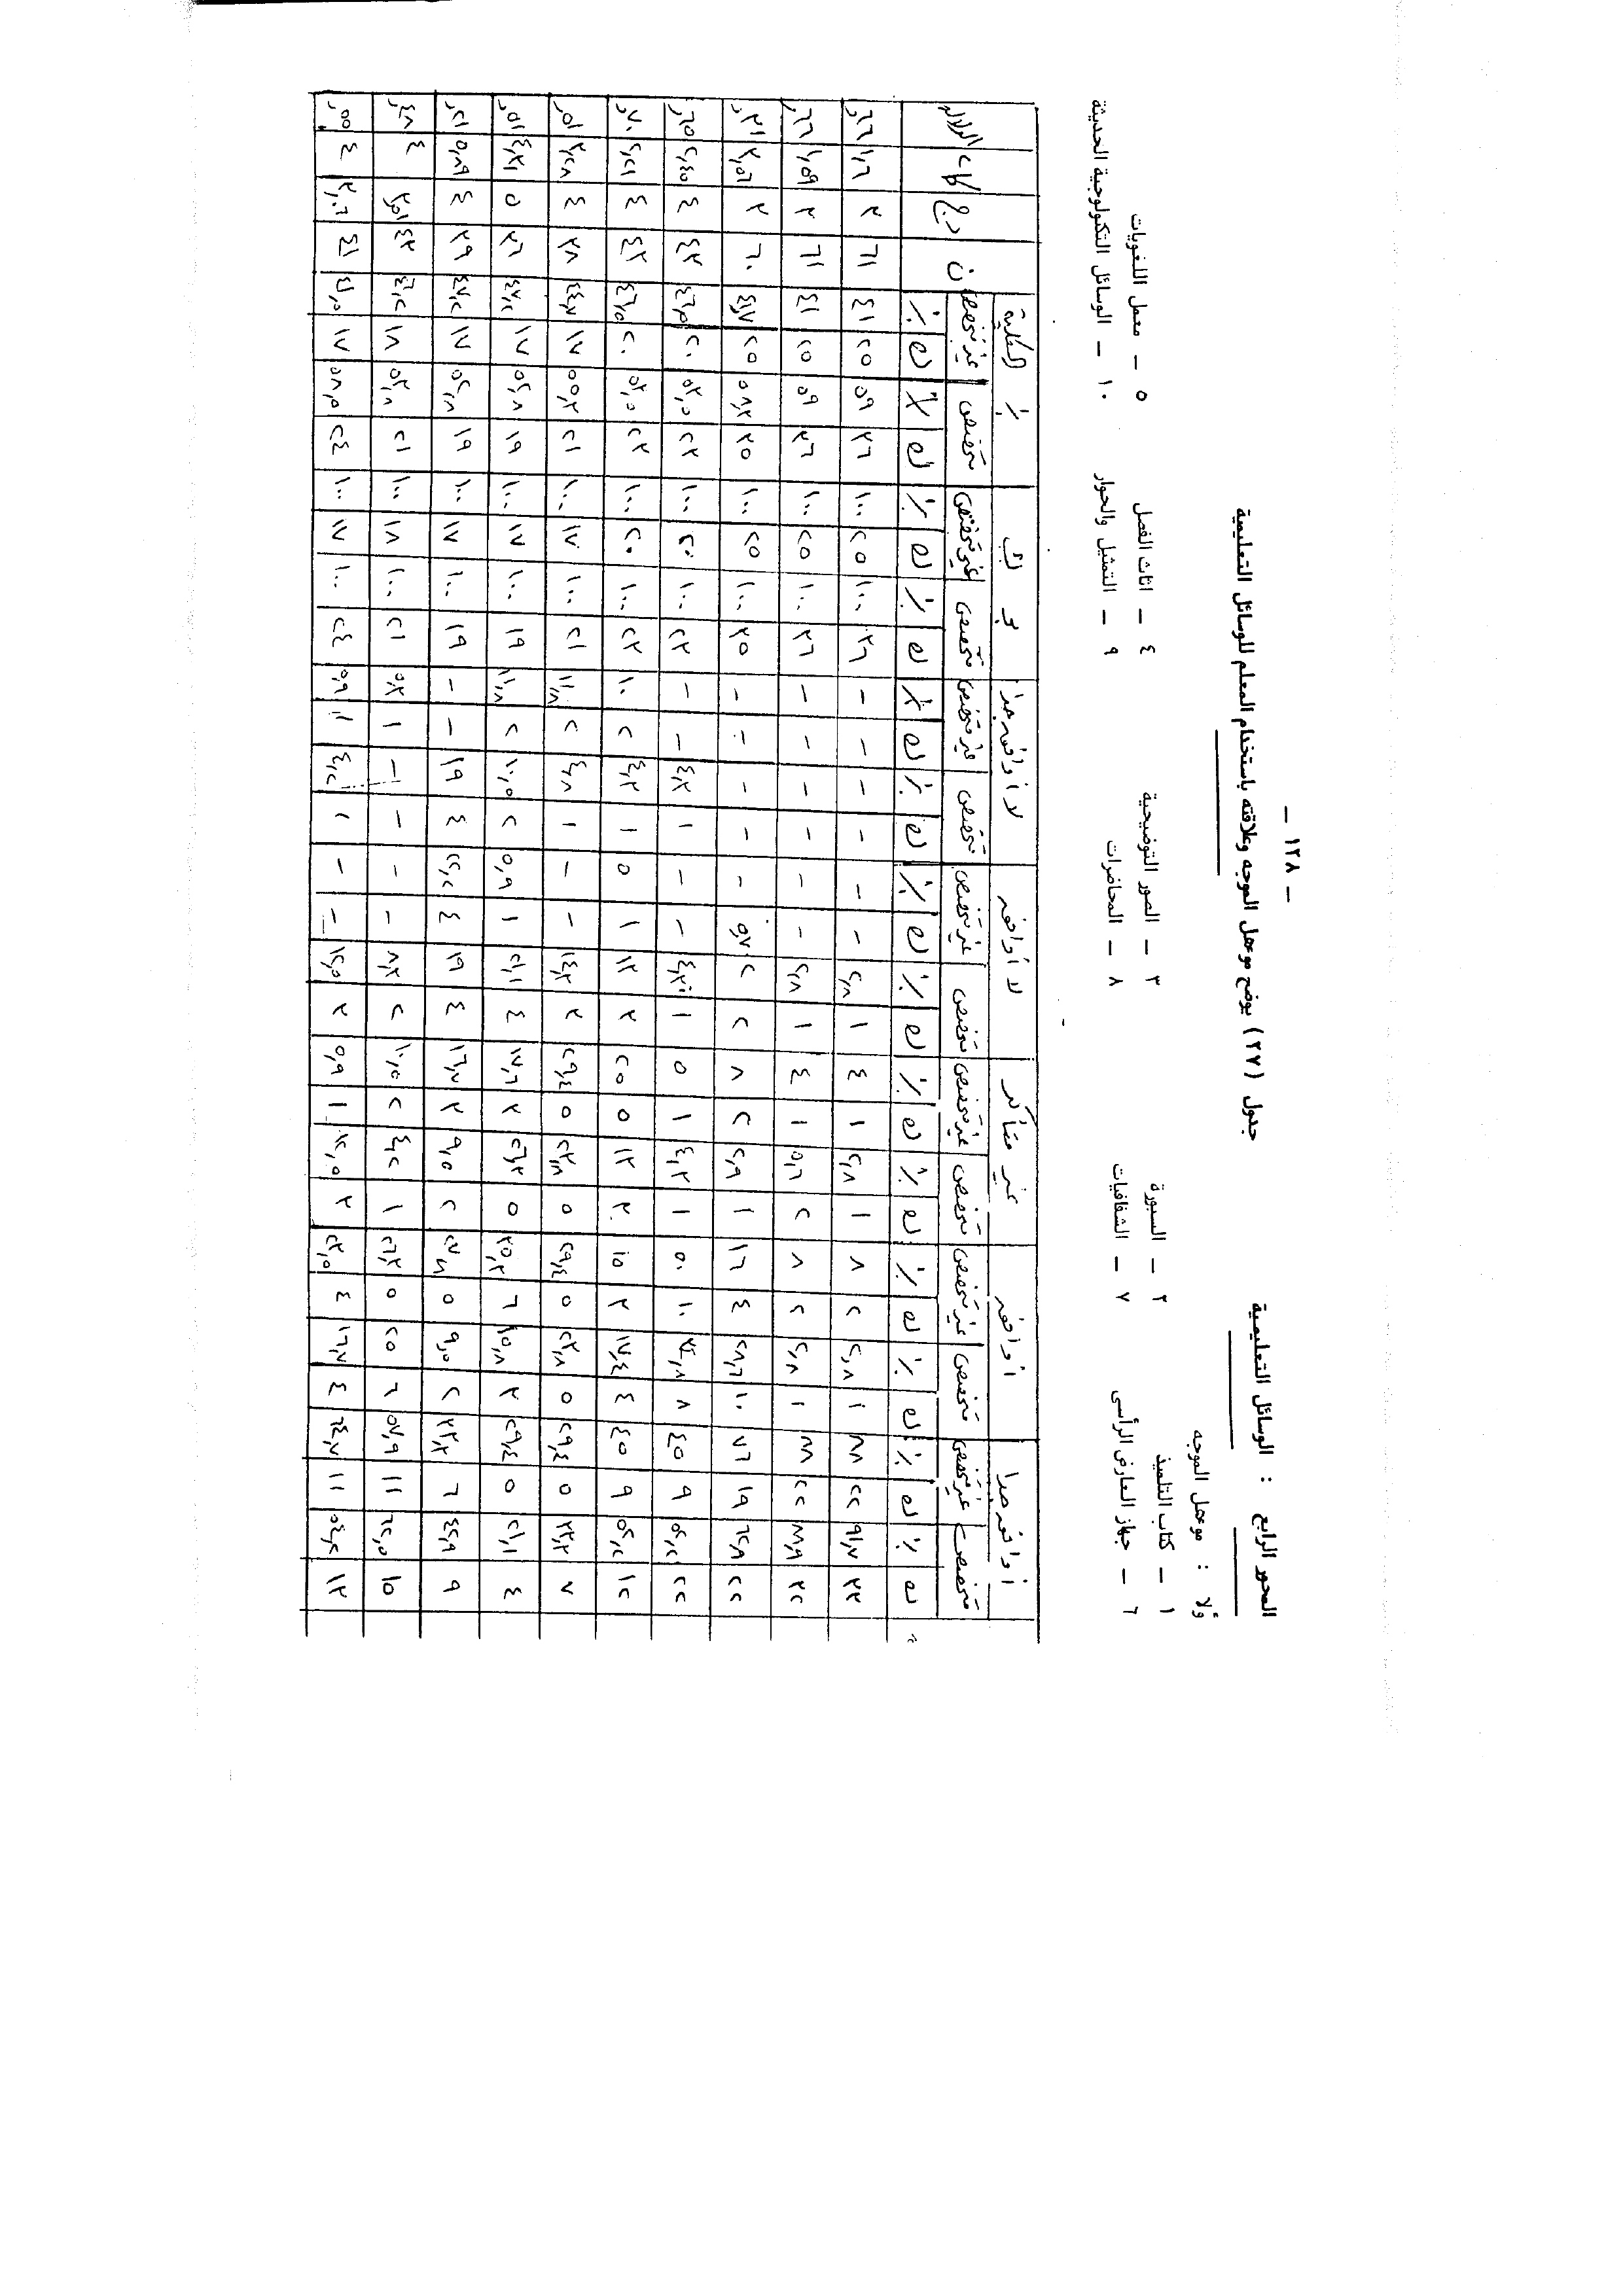 - ١٢٨ -
المحور الرابع : الوسائل التعليمية
جدول (٢٧) يوضح مؤهل الموجه وعلاقته باستخدام المعلم للوسائل التعليمية
أولا : مؤهل الموجه
١ - كتاب التلميذ ٢ - السبورة ٣ - الصور التوضيحية ٤ - اثاث الفصل ٥ - معمل اللغويات
٦ - جهاز العارض الرأسى ٧ - الشفافيات ٨ - المحاضرات ٩ - التمثيل والحوار ١٠ - الوسائل التكنولوجية الحديثة
أوافق جدا أوافق غير متأكد لا أوافق لا أوافق جدا مج ك ٪ الكلية
متخصص غير متخصص متخصص غير متخصص متخصص غير متخصص متخصص غير متخصص متخصص غير متخصص متخصص غير متخصص متخصص غير متخصص ن د.ح كا٢ الدلالة
ك ٪ ك ٪ ك ٪ ك ٪ ك ٪ ك ٪ ك ٪ ك ٪ ك ٪ ك ٪ ك ٪ ك ٪ ك ٪ ك ٪
٣٣ ٩١,٧ ٢٢ ٨٨ ١ ٢,٨ ٢ ٨ ١ ٢,٨ ١ ٤ ١ ٢,٨ - - - - - - ٣٦ ١٠٠ ٢٥ ١٠٠ ٣٦ ٥٩ ٢٥ ٤١ ٦١ ٣ ١,٦ ,٦٦
٣٢ ٨٨,٩ ٢٢ ٨٨ ١ ٢,٨ ٢ ٨ ٢ ٥,٦ ١ ٤ ١ ٢,٨ - - - - - - ٣٦ ١٠٠ ٢٥ ١٠٠ ٣٦ ٥٩ ٢٥ ٤١ ٦١ ٣ ١,٥٩ ,٦٦
٢٢ ٦٢,٩ ١٩ ٧٦ ١٠ ٢٨,٦ ٤ ١٦ ١ ٢,٩ ٢ ٨ ٢ ٢ ٥,٧ - - - - - ٣٥ ١٠٠ ٢٥ ١٠٠ ٣٥ ٥٨,٣ ٢٥ ٤١,٧ ٦٠ ٣ ٣,٥٦ ,٣١
٢٢ ٥٢,٢ ٩ ٤٥ ٨ ٣٤,٨ ١٠ ٥٠ ١ ٤,٣ ١ ٥ ١ ٤,٣ - - ١ ٤,٣ - - ٢٣ ١٠٠ ٢٠ ١٠٠ ٢٣ ٥٣,٥ ٢٠ ٤٦,٥ ٤٣ ٤ ٢,٤٥ ,٦٥
١٢ ٥٢,٢ ٩ ٤٥ ٤ ١٧,٤ ٣ ١٥ ٣ ١٣ ٥ ٢٥ ٣ ١٣ ١ ٥ ١ ٤,٣ ٢ ١٠ ٢٣ ١٠٠ ٢٠ ١٠٠ ٢٣ ٥٣,٥ ٢٠ ٤٦,٥ ٤٣ ٤ ٢,٢١ ,٧٠
٧ ٣٣,٣ ٥ ٢٩,٤ ٥ ٢٣,٨ ٥ ٢٩,٤ ٥ ٢٣,٨ ٥ ٢٩,٤ ٣ ١٤,٣ - - ١ ٤,٨ ٢ ١١,٨ ٢١ ١٠٠ ١٧ ١٠٠ ٢١ ٥٥,٣ ١٧ ٤٤,٧ ٣٨ ٤ ٣,٢٨ ,٥١
٤ ٢١,١ ٥ ٢٩,٤ ٣ ١٥,٨ ٦ ٣٥,٣ ٥ ٢٦,٣ ٣ ١٧,٦ ٤ ٢١,١ ١ ٥,٩ ٢ ١٠,٥ ٢ ١١,٨ ١٩ ١٠٠ ١٧ ١٠٠ ١٩ ٥٢,٨ ١٧ ٤٧,٢ ٣٦ ٥ ٤,٢١ ,٥١
٩ ٤٢,٩ ٦ ٣٣,٣ ٢ ٩,٥ ٥ ٢٧,٨ ٢ ٩,٥ ٣ ١٦,٧ ٤ ١٩ ٤ ٢٢,٢ ٤ ١٩ - - ١٩ ١٠٠ ١٧ ١٠٠ ١٩ ٥٢,٨ ١٧ ٤٧,٢ ٣٩ ٤ ٥,٨٩ ,٢١
١٥ ٦٢,٥ ١١ ٥٧,٩ ٦ ٢٥ ٥ ٢٦,٣ ١ ٤,٢ ٢ ١٠,٥ ٢ ٨,٣ - - - - ١ ٥,٣ ٢١ ١٠٠ ١٨ ١٠٠ ٢١ ٥٣,٨ ١٨ ٤٦,٢ ٤٣ ٣,٥١ ٤ ,٤٨
١٣ ٥٤,٢ ١١ ٦٤,٧ ٤ ١٦,٧ ٤ ٢٣,٥ ٣ ١٢,٥ ١ ٥,٩ ٣ ١٢,٥ - - ١ ٤,٢ ١ ٥,٩ ٢٤ ١٠٠ ١٧ ١٠٠ ٢٤ ٥٨,٥ ١٧ ٤١,٥ ٤١ ٣,٠٦ ٤ ,٥٥